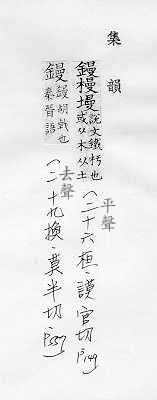 集韻
鏝槾墁
說文鐵杇也
或从木从土
平聲
〈二十六桓、謨官切 P149
鏝
鏝胡戟也
秦晉語
去聲
〈二十九換、莫半切 P557